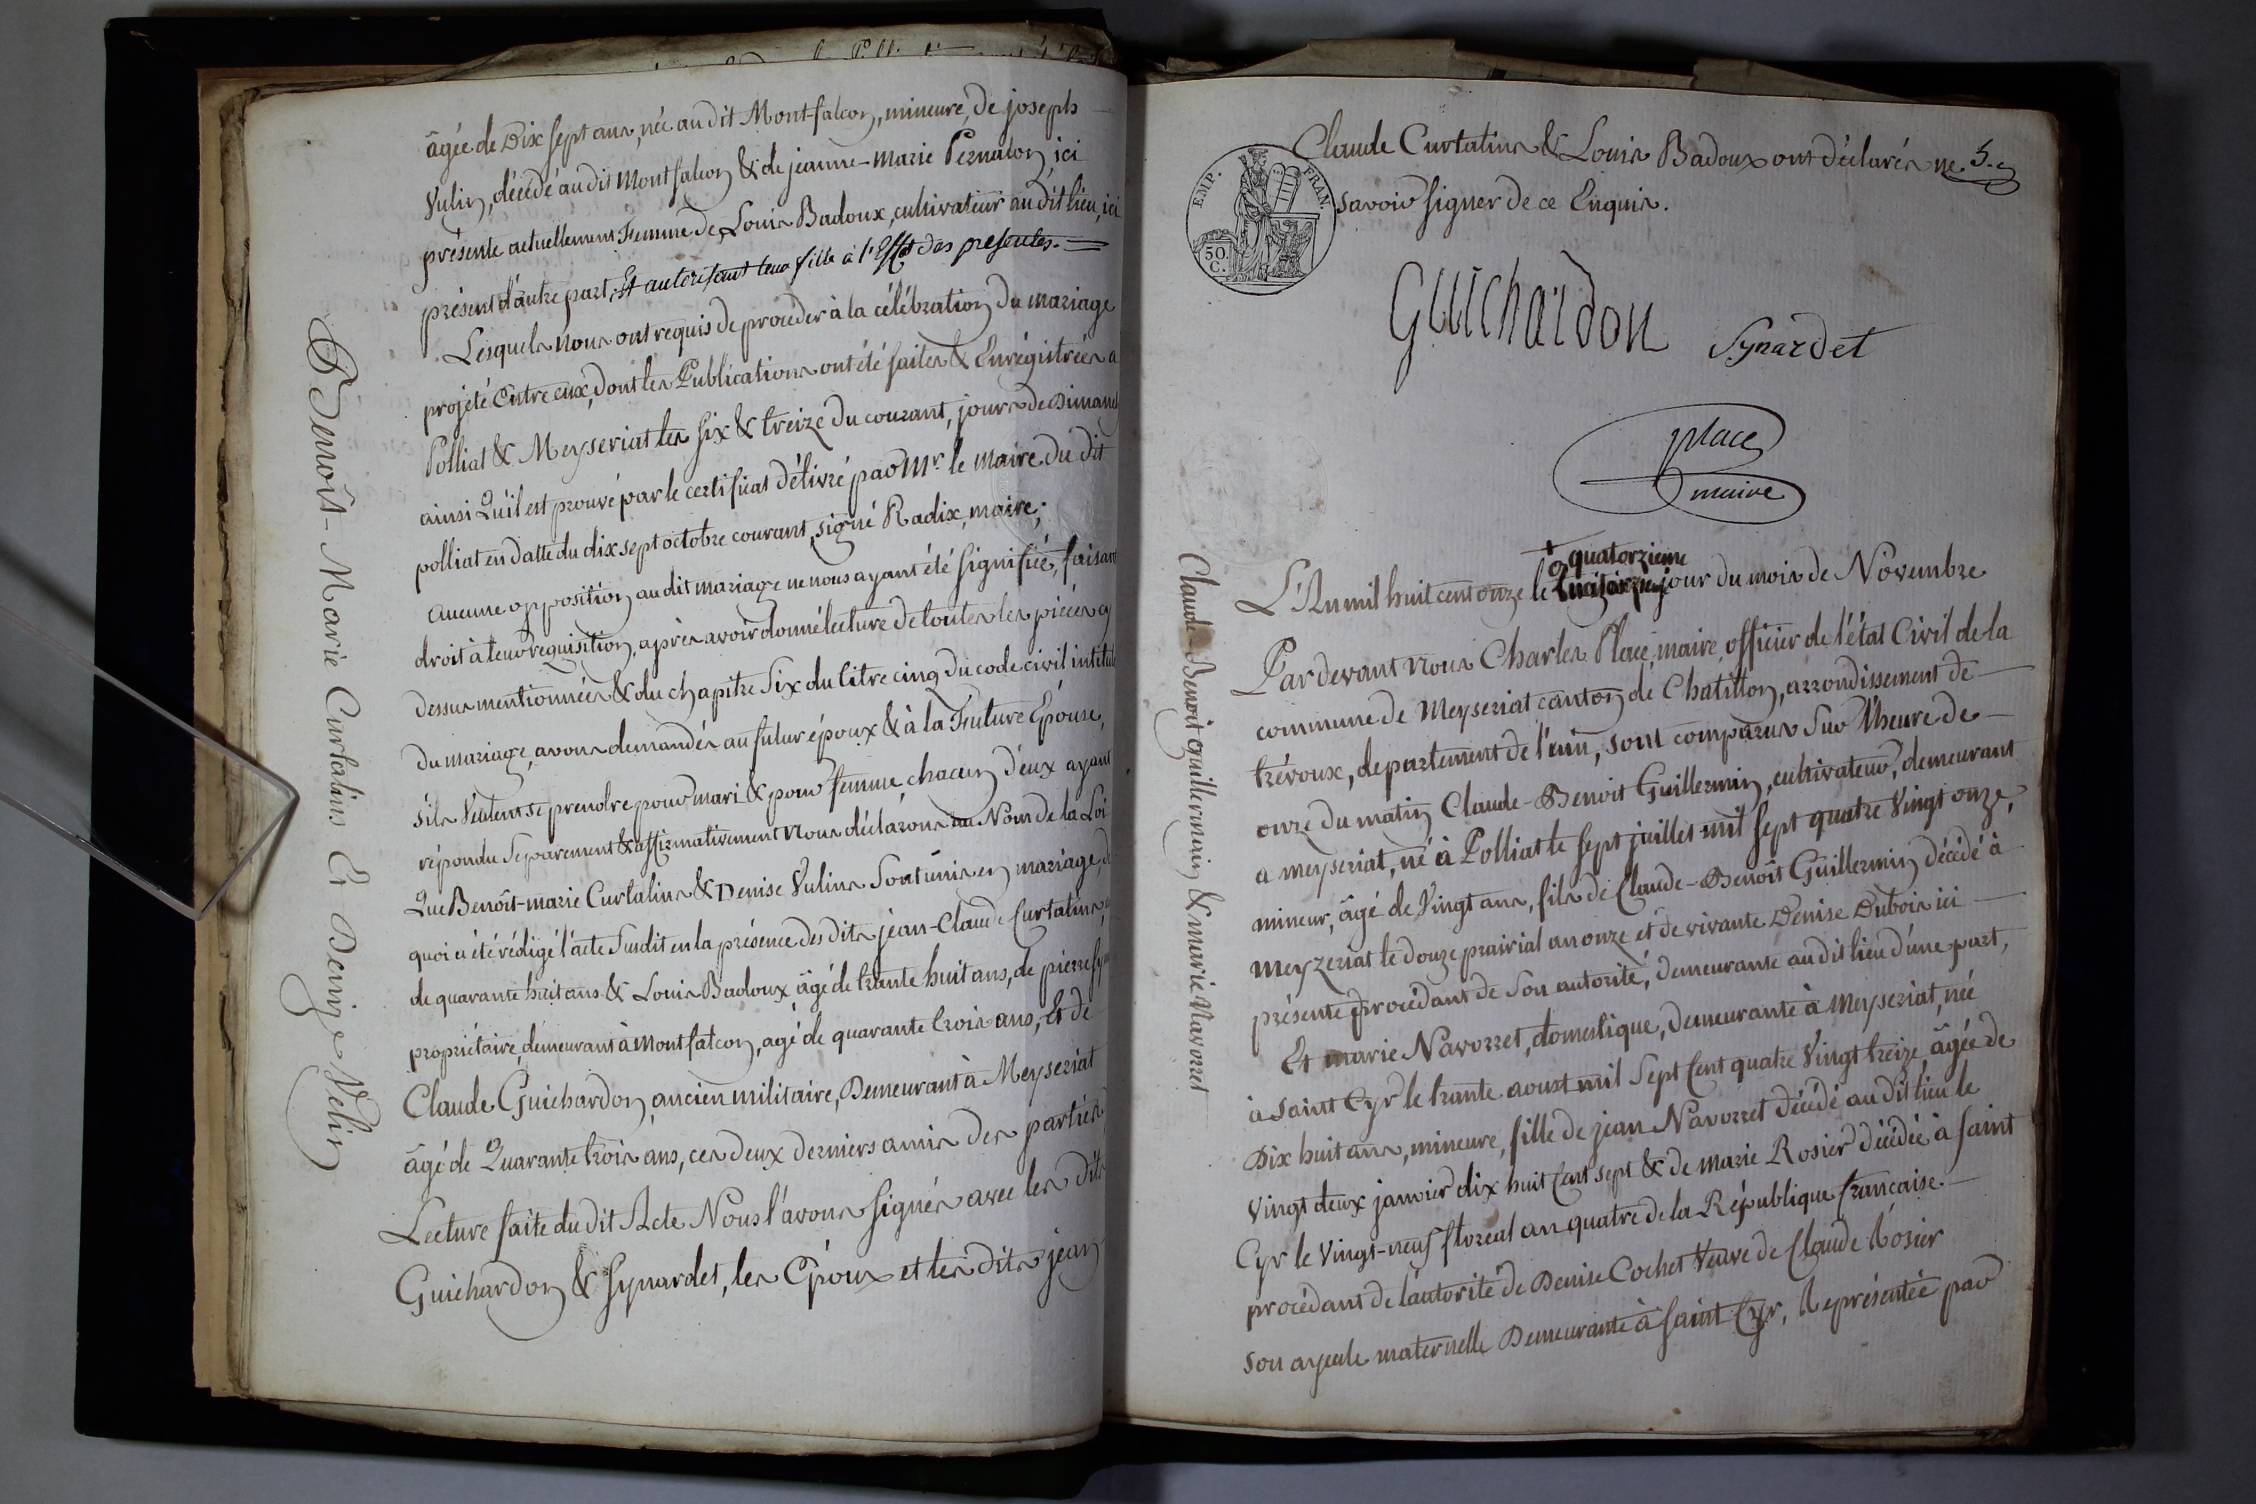 âgée de Dix sept ans, née au dit Mont-falcon, mineure, de joseph
Vulin, décédé au dit Montfalcon & de jeanne-marie Pernalon ici
présente actuellement Femme de Louis Badoux, cultivateur au dit lieu, ici
présent d'autre part, Et autorisant leur fille à l'Effet des presentes.
Lesquels nous ont requis de proceder à la célébration du mariage
projété Entre eux, dont les Publications ont été faites & Enrégistrées a
Polliat & Meyseriat les six & treize du courant, jours de Dimanc
ainsi Qu'il est prouvé par le certificat délivré par Mr. le maire du dit
polliat en datte du dix sept octobre courant, signé Radix, maire;
Aucune opposition au dit mariage ne nous ayant été signifiée, faisant
droit à leur requisition, après avoir donné lecture de toutes les pièces cy
dessus mentionnées & du chapitre six du titre cinq du code civil intitul
du mariage, avons demandés au futur époux & à la Future Epouse,
s'ils veulent se prendre pour mari & pour femme chacun d'eux ayant
répondu separement & affirmativement nous déclarons au Nom de la Loi
Que Benoît-marie Curtalins & Denise Vulins sont unis en mariage, de
quoi a été rédigé l'acte susdit en la présence des dits jean-Claude Curtalins,
de quarante huit ans & Louis Badoux âgé de trante huit ans, de pierre
propriétaire, demeurant à montfalcon, agé de quarante trois ans, Et de
Claude Guichardon, ancien militaire, Demeurant à Meyseriat
âgé de Quarante trois ans, ces deux derniers amis des parties
Lecture faite du dit Acte Nous l'avons signés avec les dits
Guichardon & Synardet, les Epoux et les dits jean
Benoît-Marie Curtalins Et Denize Velin
Claude Curtalins & Louis Badoux ont déclarés ne
savoir signer de ce Enquis.
EMP. FRAN.
50.
C.
Guichardon
Synardet
place
maire
Claude Benoit guillermin & marie Navorret
quatorzieme
L'An mil huit cent onze le jour du mois de Novembre
Pardevant nous Charles Place, maire, officier de l'état Civil de la
commune de Meyseriat canton de Chatillon, arrondissement de
trévoux, departement de l'ain, sont comparus Sur l'heure de
onze du matin Claude-Benoit Guillermin, cultivateur, demeurant
a meyseriat, né à Polliat le sept juillet mil sept quatre Vingt onze,
mineur, âgé de Vingt ans, fils de Claude-Benoît Guillermin décédé à
Meyzeriat le douze prairial an onze et de vivante Denise Dubois ici
présente procédant de son autorité, demeurante au dit lieu d'une part,
Et marie Navorret, domestique, demeurante à Meyseriat, née
à Saint Cyr le trante aoust mil sept cent quatre Vingt treize, âgée de
Dix huit ans, mineure, fille de jean Navorret décédé au dit lieu le
Vingt deux janvier dix huit cent sept & de marie Rosier décédée à saint
Cyr le Vingt-neuf floréal an quatre de la République francaise.
procédant de l'autorité de Denise Cochet Veuve de Claude Rosier
son ayeule maternelle Demeurante à saint Cyr, Représentée par